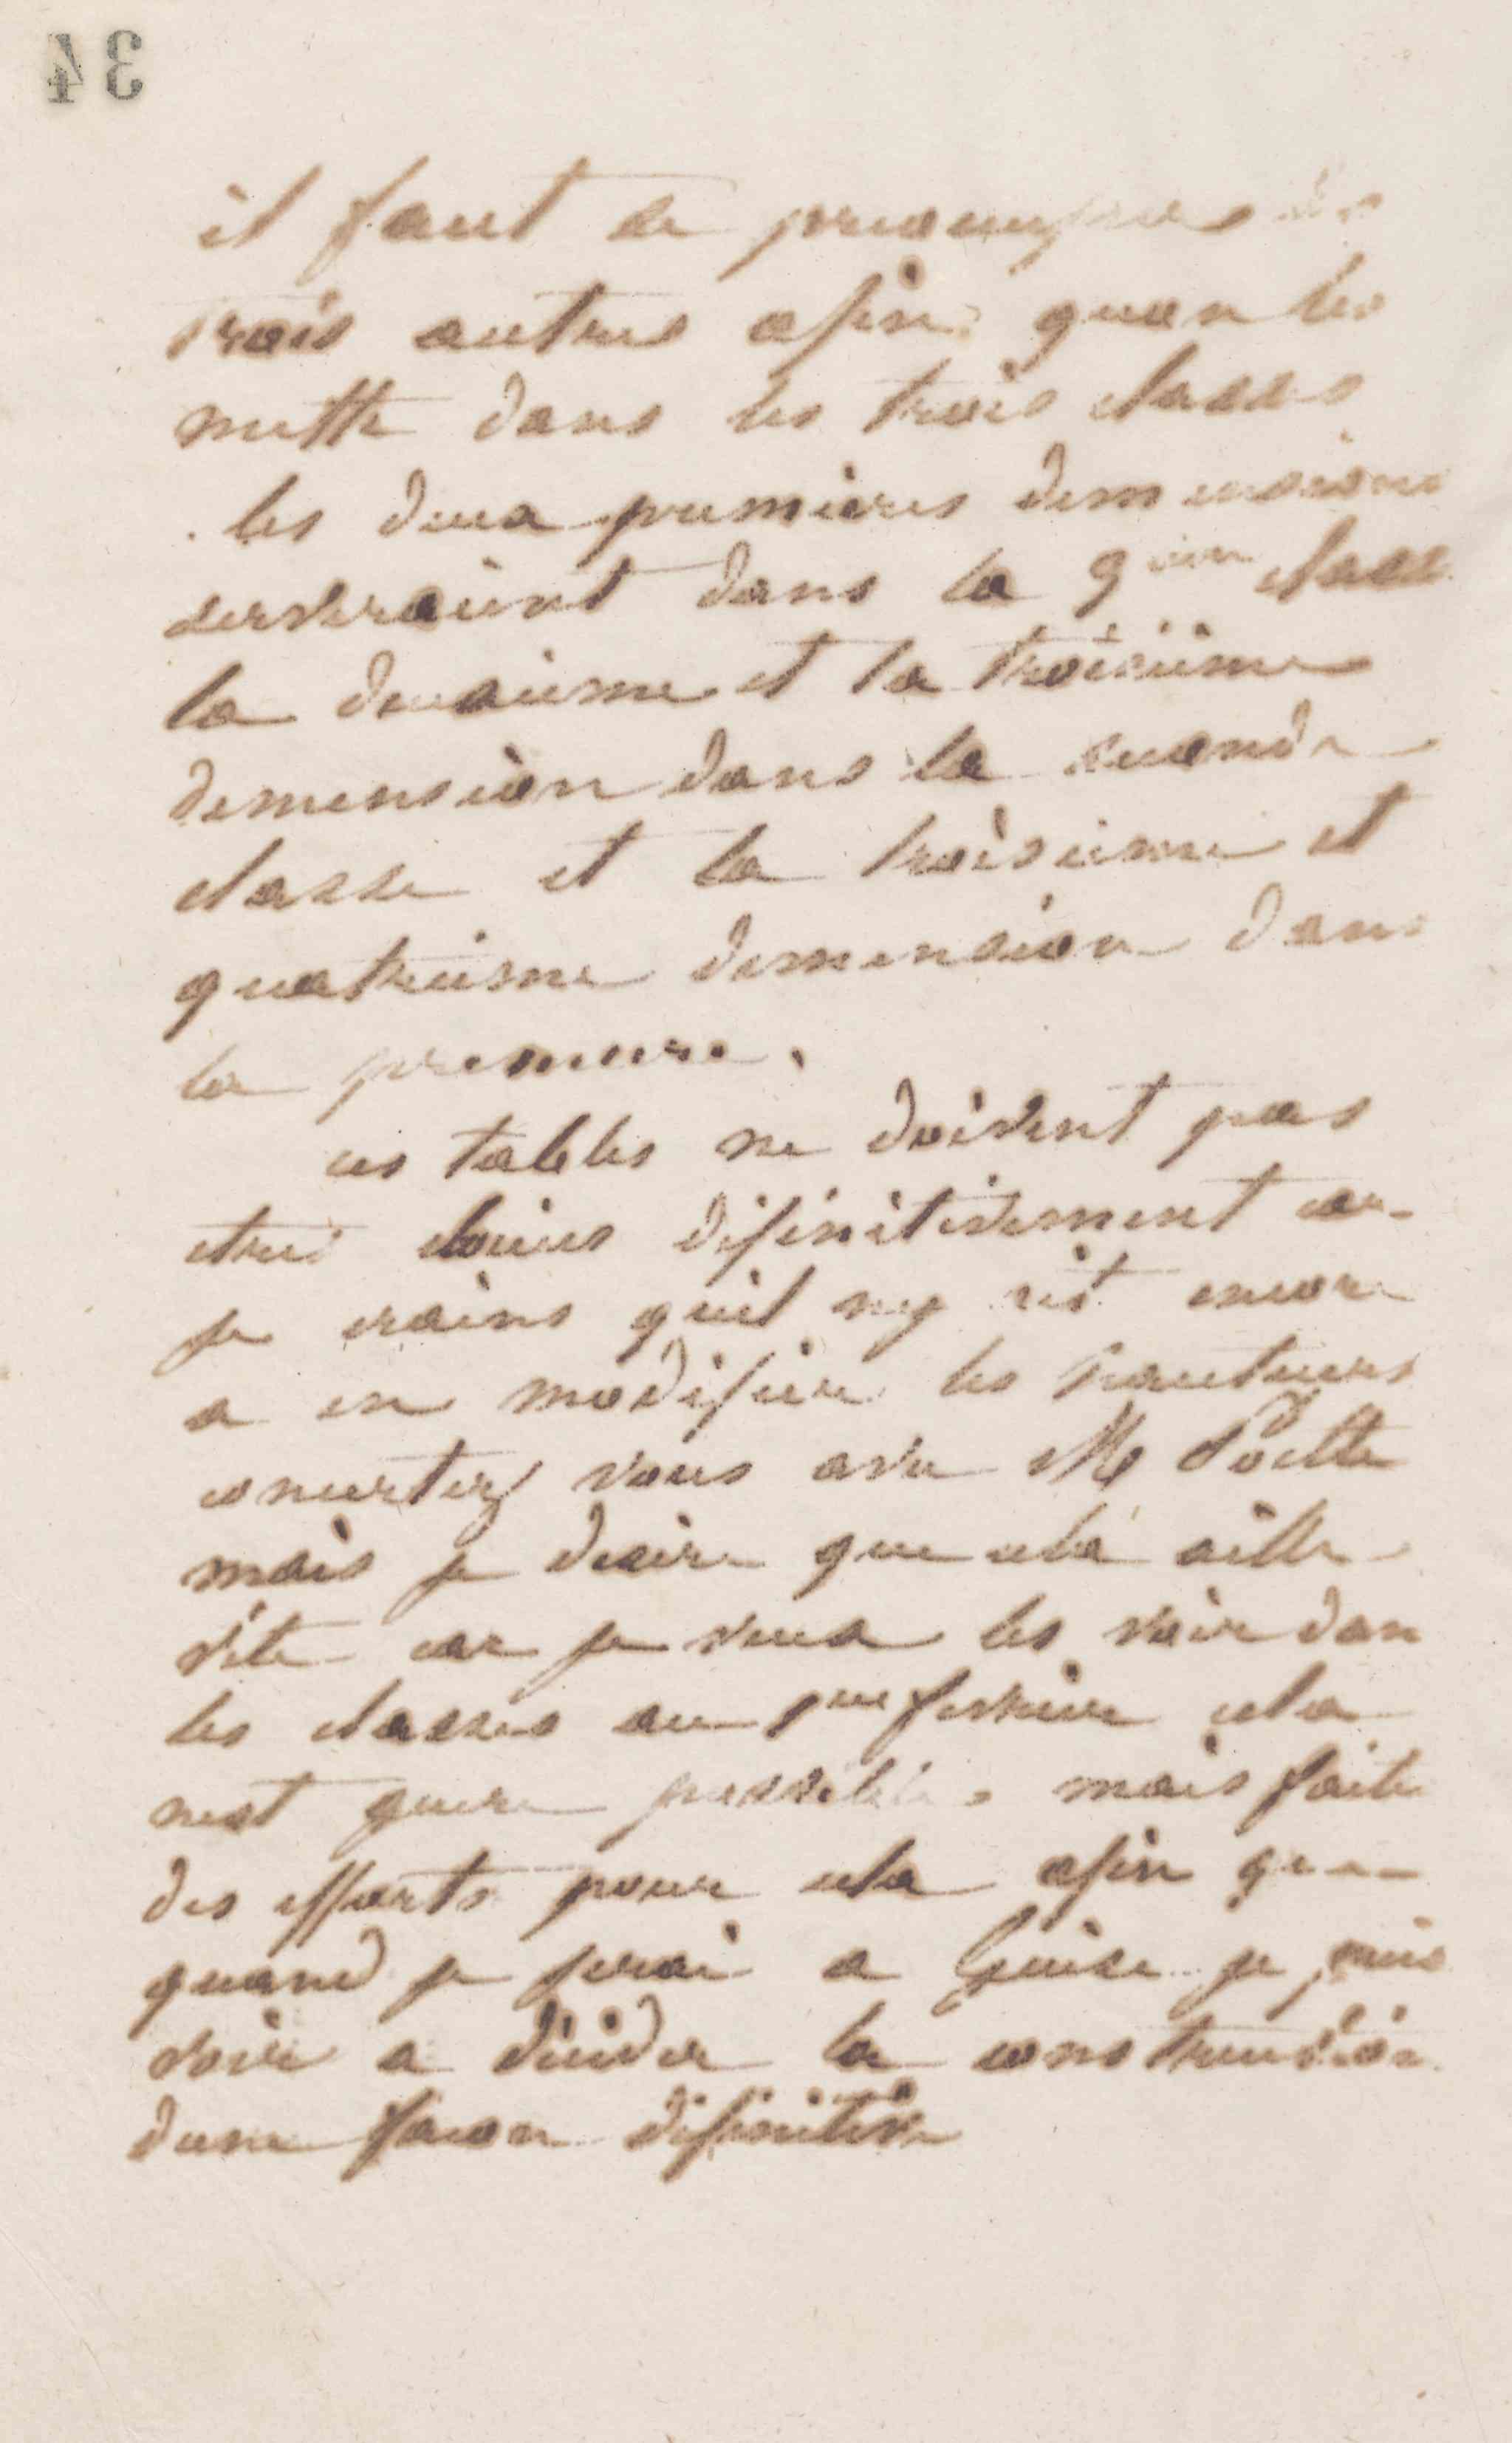 34
il faut se preoccuper des
trois autres afin quon les
mette dans les trois classes
les deux premieres demensions
serviraient dans la 3ieme classe
la deuxieme et la troisieme
demension dans la seconde
classe et la troisieme et
quatrieme demension dans
la premiere.
ces tables ne doivent pas
etre clouées difinitivement car
je crains quil ny ait encore
a en modifier les hauteurs
concertez vous avec M
mais je desire que cela aille
vite car je veux les voir dans
les classes au 1er fevrier cela
nest guere possible mais faite
des efforts pour cela afin que
quand je serai a Guise je puis
voir a décider la construction
dune facon difinitive